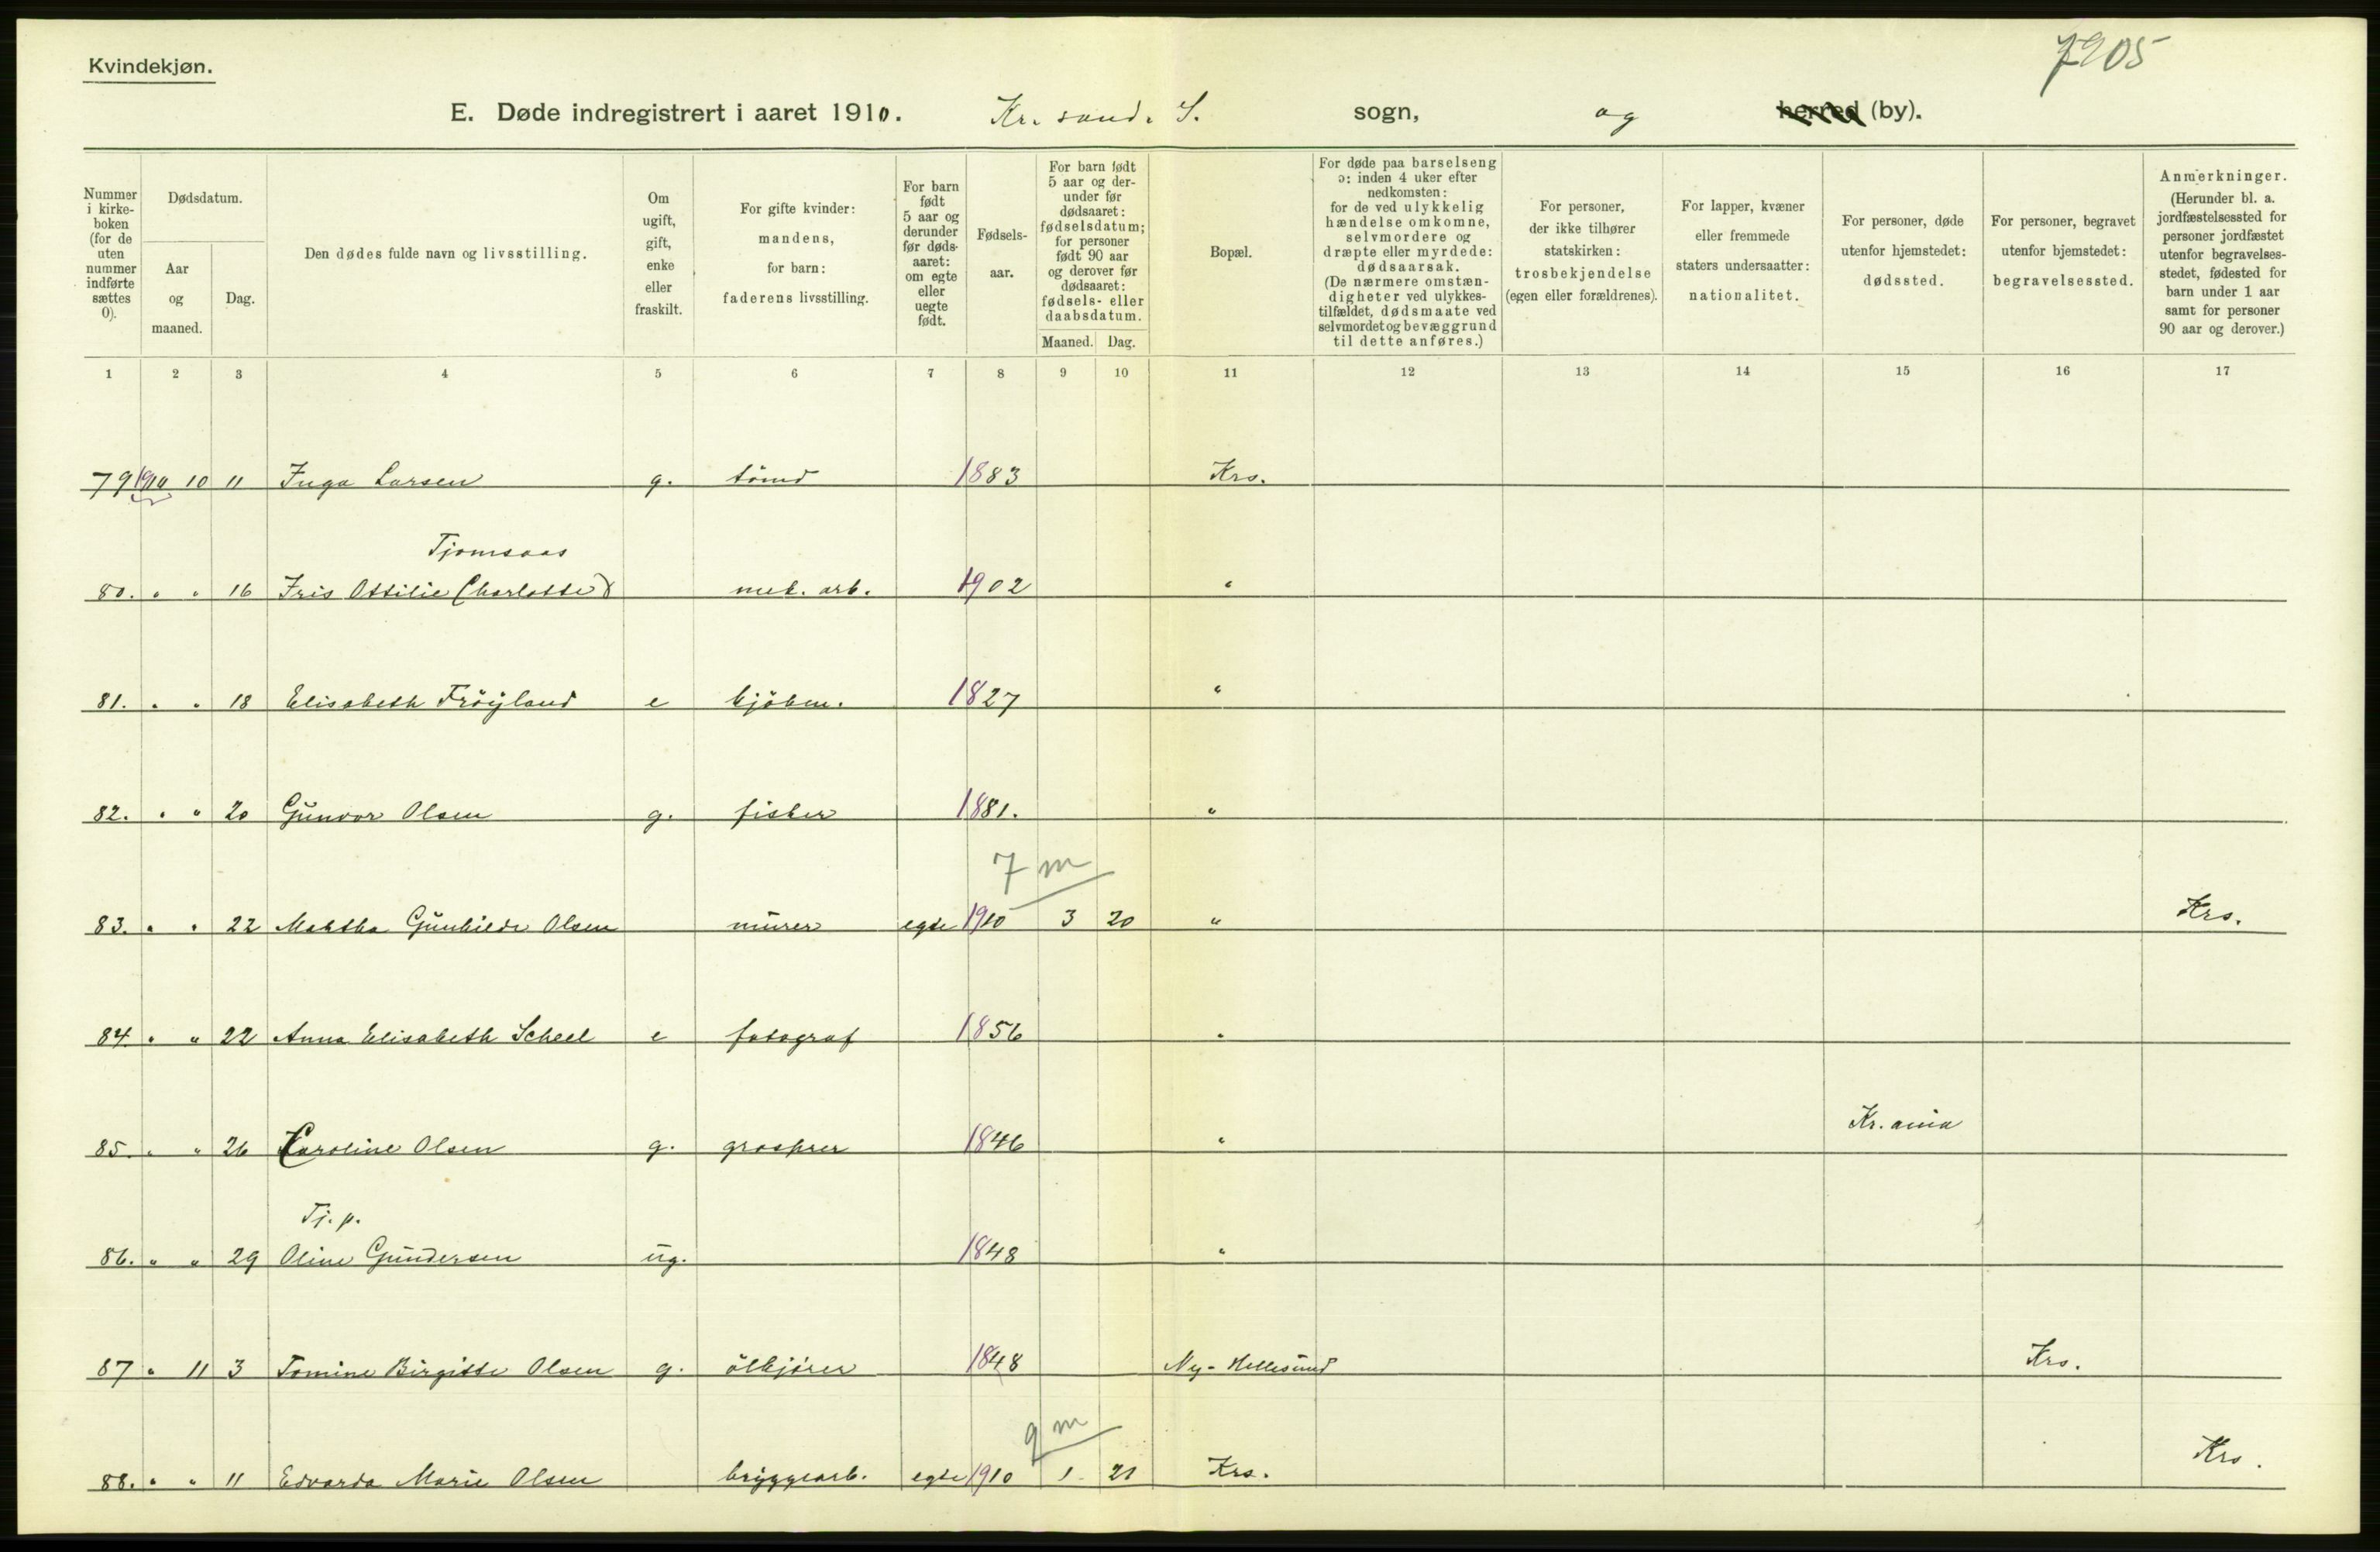 Kvindekjøn.
7205
E. Døde indregistrert i aaret 1910. Kr. sand. S. sogn, og herred (by).
Nummer i kirke-boken (for de uten nummer indførte sættes 0).
Dødsdatum.
Aar og maaned.
Dag.
Den dødes fulde navn og livsstilling.
Om ugift, gift, enke eller fraskilt.
For gifte kvinder: mandens, for barn: faderens livsstilling.
For barn født 5 aar og derunder før døds-aaret: om egte eller uegte født.
Fødsels-aar.
For barn født 5 aar og der-under før dødsaaret: fødselsdatum; for personer født 90 aar og derover før dødsaaret: fødsels- eller daabsdatum.
Maaned. Dag.
Bopæl.
For døde paa barselseng ɔ: inden 4 uker efter nedkomsten: for de ved ulykkelig hændelse omkomne, selvmordere og dræpte eller myrdede: dødsaarsak. (De nærmere omstæn-digheter ved ulykkes-tilfældet, dødsmaate ved selvmordet og bevæggrund til dette anføres.)
For personer, der ikke tilhører statskirken: trosbekjendelse (egen eller forældrenes).
For lapper, kvæner eller fremmede staters undersaatter: nationalitet.
For personer, døde utenfor hjemstedet: dødssted.
For personer, begravet utenfor bjemstedet: begravelsessted.
Anmerkninger. (Herunder bl. a. jordfæstelsessted for personer jordfæstet utenfor begravelses-stedet, fødested for barn under 1 aar samt for personer 90 aar og derover.)
1 2 3 4 5 6 7 8 9 10 11 12 13 14 15 16 17
79 1910 10 11 Inga Larsen g. tömd 1883 Krs.
Tjomsaas
80. " " 16 Iris Ottilie Charlotte met. arb. 1902 "
81. " " 18 Elisabeth Fröyland e kjöbm. 1827 "
82. " " 20 Gunvor Olsen g. fisker 1881. "
7 m
83. " " 22 Maktha Gunhilde Olsen murer egte 1910 3 20 " Krs.
84. " " 22 Anna Elisabeth Scheel e fotograf 1856 "
85. " " 26 Caroline Olsen g. grosrer 1846 " Kr. ania
Tj. p.
86. " " 29 Oline Gundersen ug. 1848 "
87 " 11 3 Tomine Birgitte Olsen g. ölkjörer 1848 Ny-Hellesund Krs.
9 m
88. " " 11 Edvarda Marie Olsen bryggearb. egte 1910 1 21 Krs. Krs.